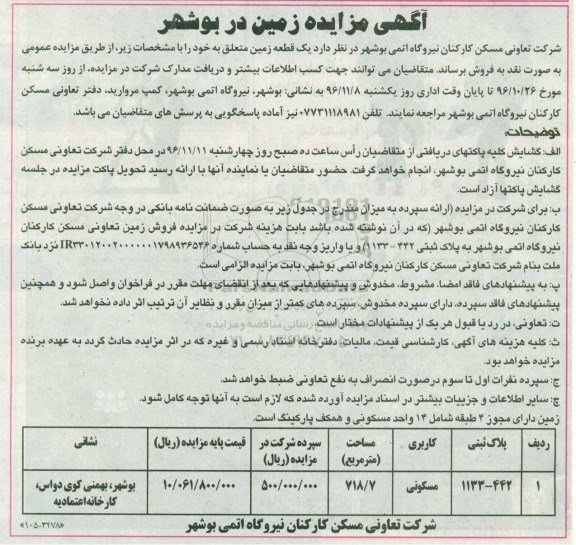 آگهی مزایده زمین در بوشهر
شرکت تعاونی مسکن کارکنان نیروگاه اتمی بوشهر در نظر دارد یک قطعه زمین متعلق به خود را با مشخصات زیر، از طریق مزایده عمومی
به صورت نقد به فروش برساند. متقاضیان می توانند جهت کسب اطلاعات بیشتر و دریافت مدارک شرکت در مزایده، از روز سه شنبه
مورخ ۹۶/۱۰/۲۶ تا پایان وقت اداری روز یکشنبه ۹۶/۱۱/۸ به نشانی: بوشهر، نیروگاه اتمی بوشهر، کمپ مروارید، دفتر تعاونی مسکن
کارکنان نیروگاه اتمی بوشهر مراجعه نمایند. تلفن ۰۷۷۳۱۱۱۸۹۸۱ نیز آماده پاسخگویی به پرسش های متقاضیان می باشد.
توضیحات:
الف: گشایش کلیه پاکتهای دریافتی از متقاضیان رأس ساعت ده صبح روز چهارشنبه ۹۶/۱۱/۱۱ در محل دفتر شرکت تعاونی مسکن
کارکنان نیروگاه اتمی بوشهر، انجام خواهد گرفت. حضور متقاضیان یا نماینده آنها با ارائه رسید تحویل پاکت مزایده در جلسه
گشایش پاکتها آزاد است.
ب: برای شرکت در مزایده (ارائه سپرده به میزان مندرج در جدول زیر به صورت ضمانت نامه بانکی در وجه شرکت تعاونی مسکن
کارکنان نیروگاه اتمی بوشهر (که در آن نوشته شده باشد بابت هزینه شرکت در مزایده فروش زمین تعاونی مسکن کارکنان
نیروگاه اتمی بوشهر به پلاک ثبتی ۴۴۲ - ۱۱۳۳) و یا واریز وجه نقد به حساب شماره IR۳۳۰۱۲۰۰۲۰۰۰۰۰۰۱۷۹۸۹۳۶۵۴۶ نزد بانک
ملت بنام شرکت تعاونی مسکن کارکنان نیروگاه اتمی بوشهر، بابت مزایده الزامی است.
پ: به پیشنهادهای فاقد امضا، مشروط، مخدوش و پیشنهادهایی که بعد از انقضای مهلت مقرر در فراخوان واصل شود و همچنین
پیشنهادهای فاقد سپرده، دارای سپرده مخدوش، سپرده های کمتر از میزان مقرر و نظایر آن ترتیب اثر داده نخواهد شد.
ت: تعاونی، در رد یا قبول هر یک از پیشنهادات مختار است.
ث: کلیه هزینه های آگهی، کارشناسی قیمت، مالیات، دفترخانه اسناد رسمی و غیره که در اثر مزایده حادث گردد به عهده برنده
مزایده خواهد بود.
ج: سپرده نفرات اول تا سوم درصورت انصراف به نفع تعاونی ضبط خواهد شد.
چ: سایر اطلاعات و جزییات بیشتر در اسناد مزایده آورده شده که لازم است به آنها توجه کامل شود.
زمین دارای مجوز ۴ طبقه شامل ۱۴ واحد مسکونی و همکف پارکینگ است.
ردیف | پلاک ثبتی | کاربری | مساحت (مترمربع) | سپرده شرکت در مزایده (ریال) | قیمت پایه مزایده (ریال) | نشانی
۱ | ۱۱۳۳-۴۴۲ | مسکونی | ۷۱۸/۷ | ۵۰۰/۰۰۰/۰۰۰ | ۱۰/۰۶۱/۸۰۰/۰۰۰ | بوشهر، بهمنی کوی دواس، کارخانه اعتمادیه
شرکت تعاونی مسکن کارکنان نیروگاه اتمی بوشهر
«۱۰۵-۳۴۷۸»